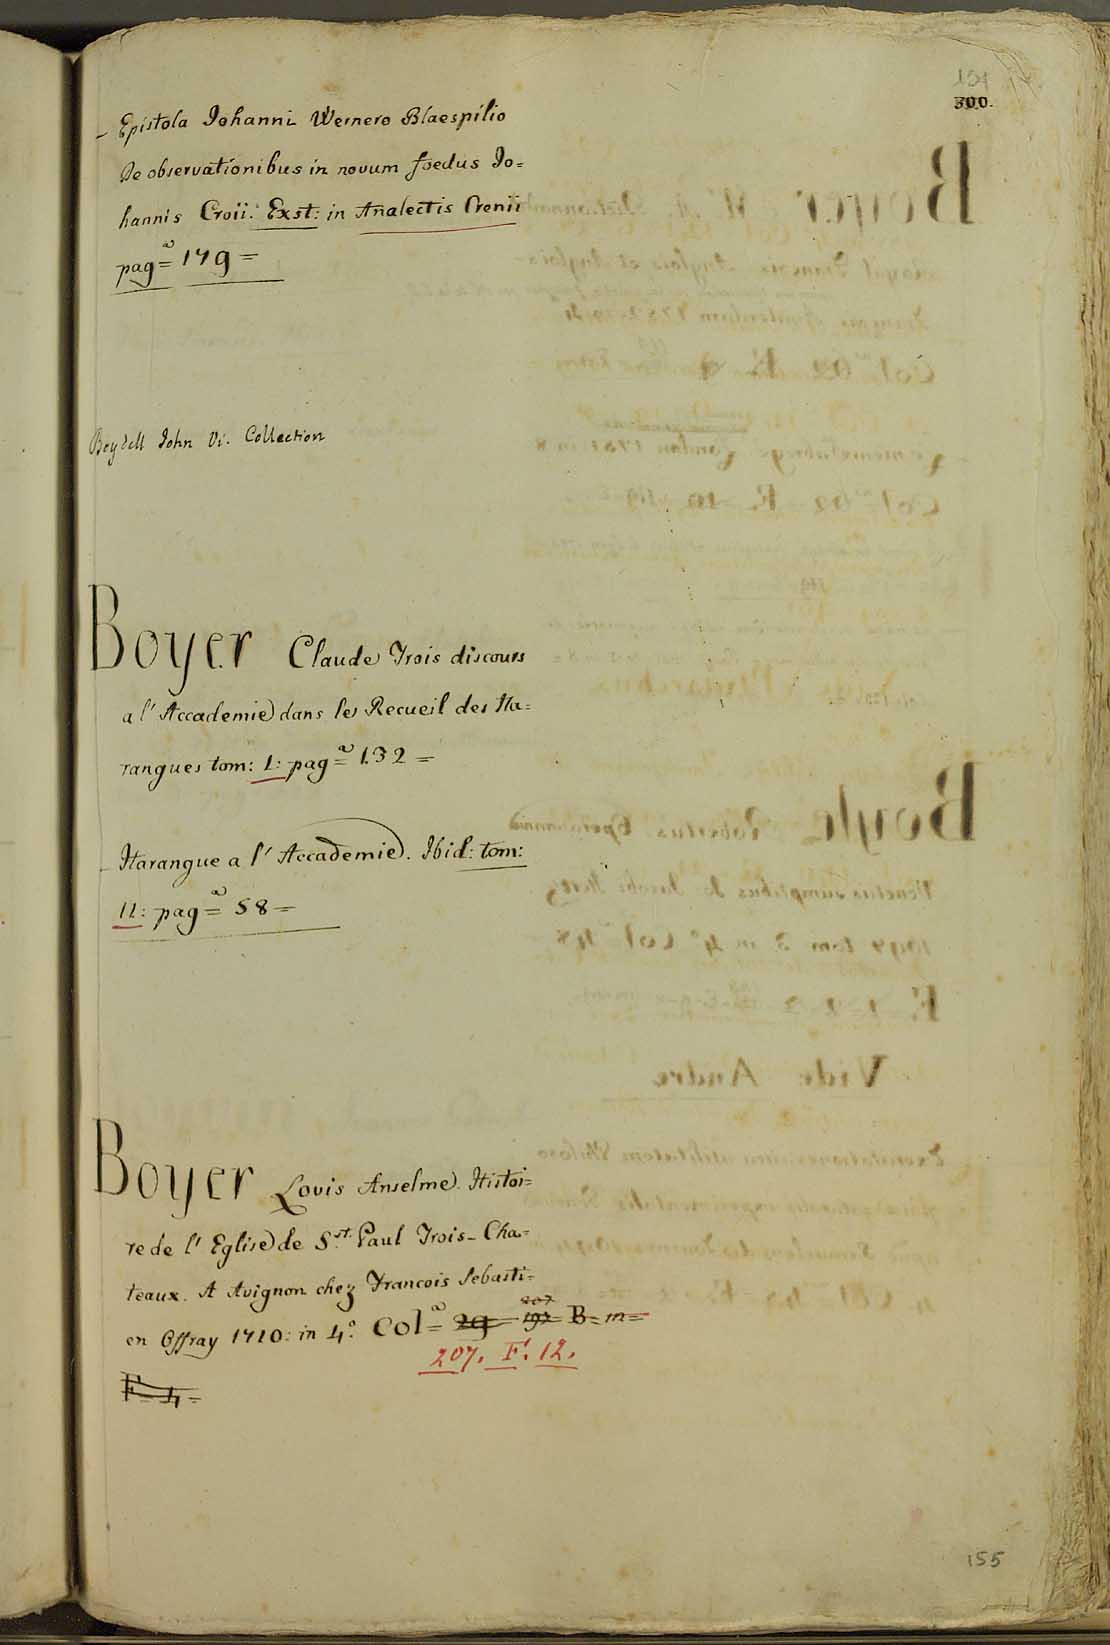 300.
– Epistola Iohanni Wernero Blaespilio
De observationibus in novum foedus Io=
hannis Croii. Exst: in Analectis Crenii
pag=a 179=
Boydell John Vi. Collection
Boyer Claude Trois discours
a l' Accademie dans les Recueil des Ha=
rangues tom: I: pag=a 132=
– Harangue a l' Accademie. Ibid: tom:
II: pag=a 58=
Boyer Louis Anselme. Histoi=
re de l' Eglise de S.st Paul Trois-Cha=
teaux. A Avignon chez Francois Sebasti=
207
en Offray 1710: in 4.o Col=a 29 197 B=m=
207. F. 12.
F 4=
155